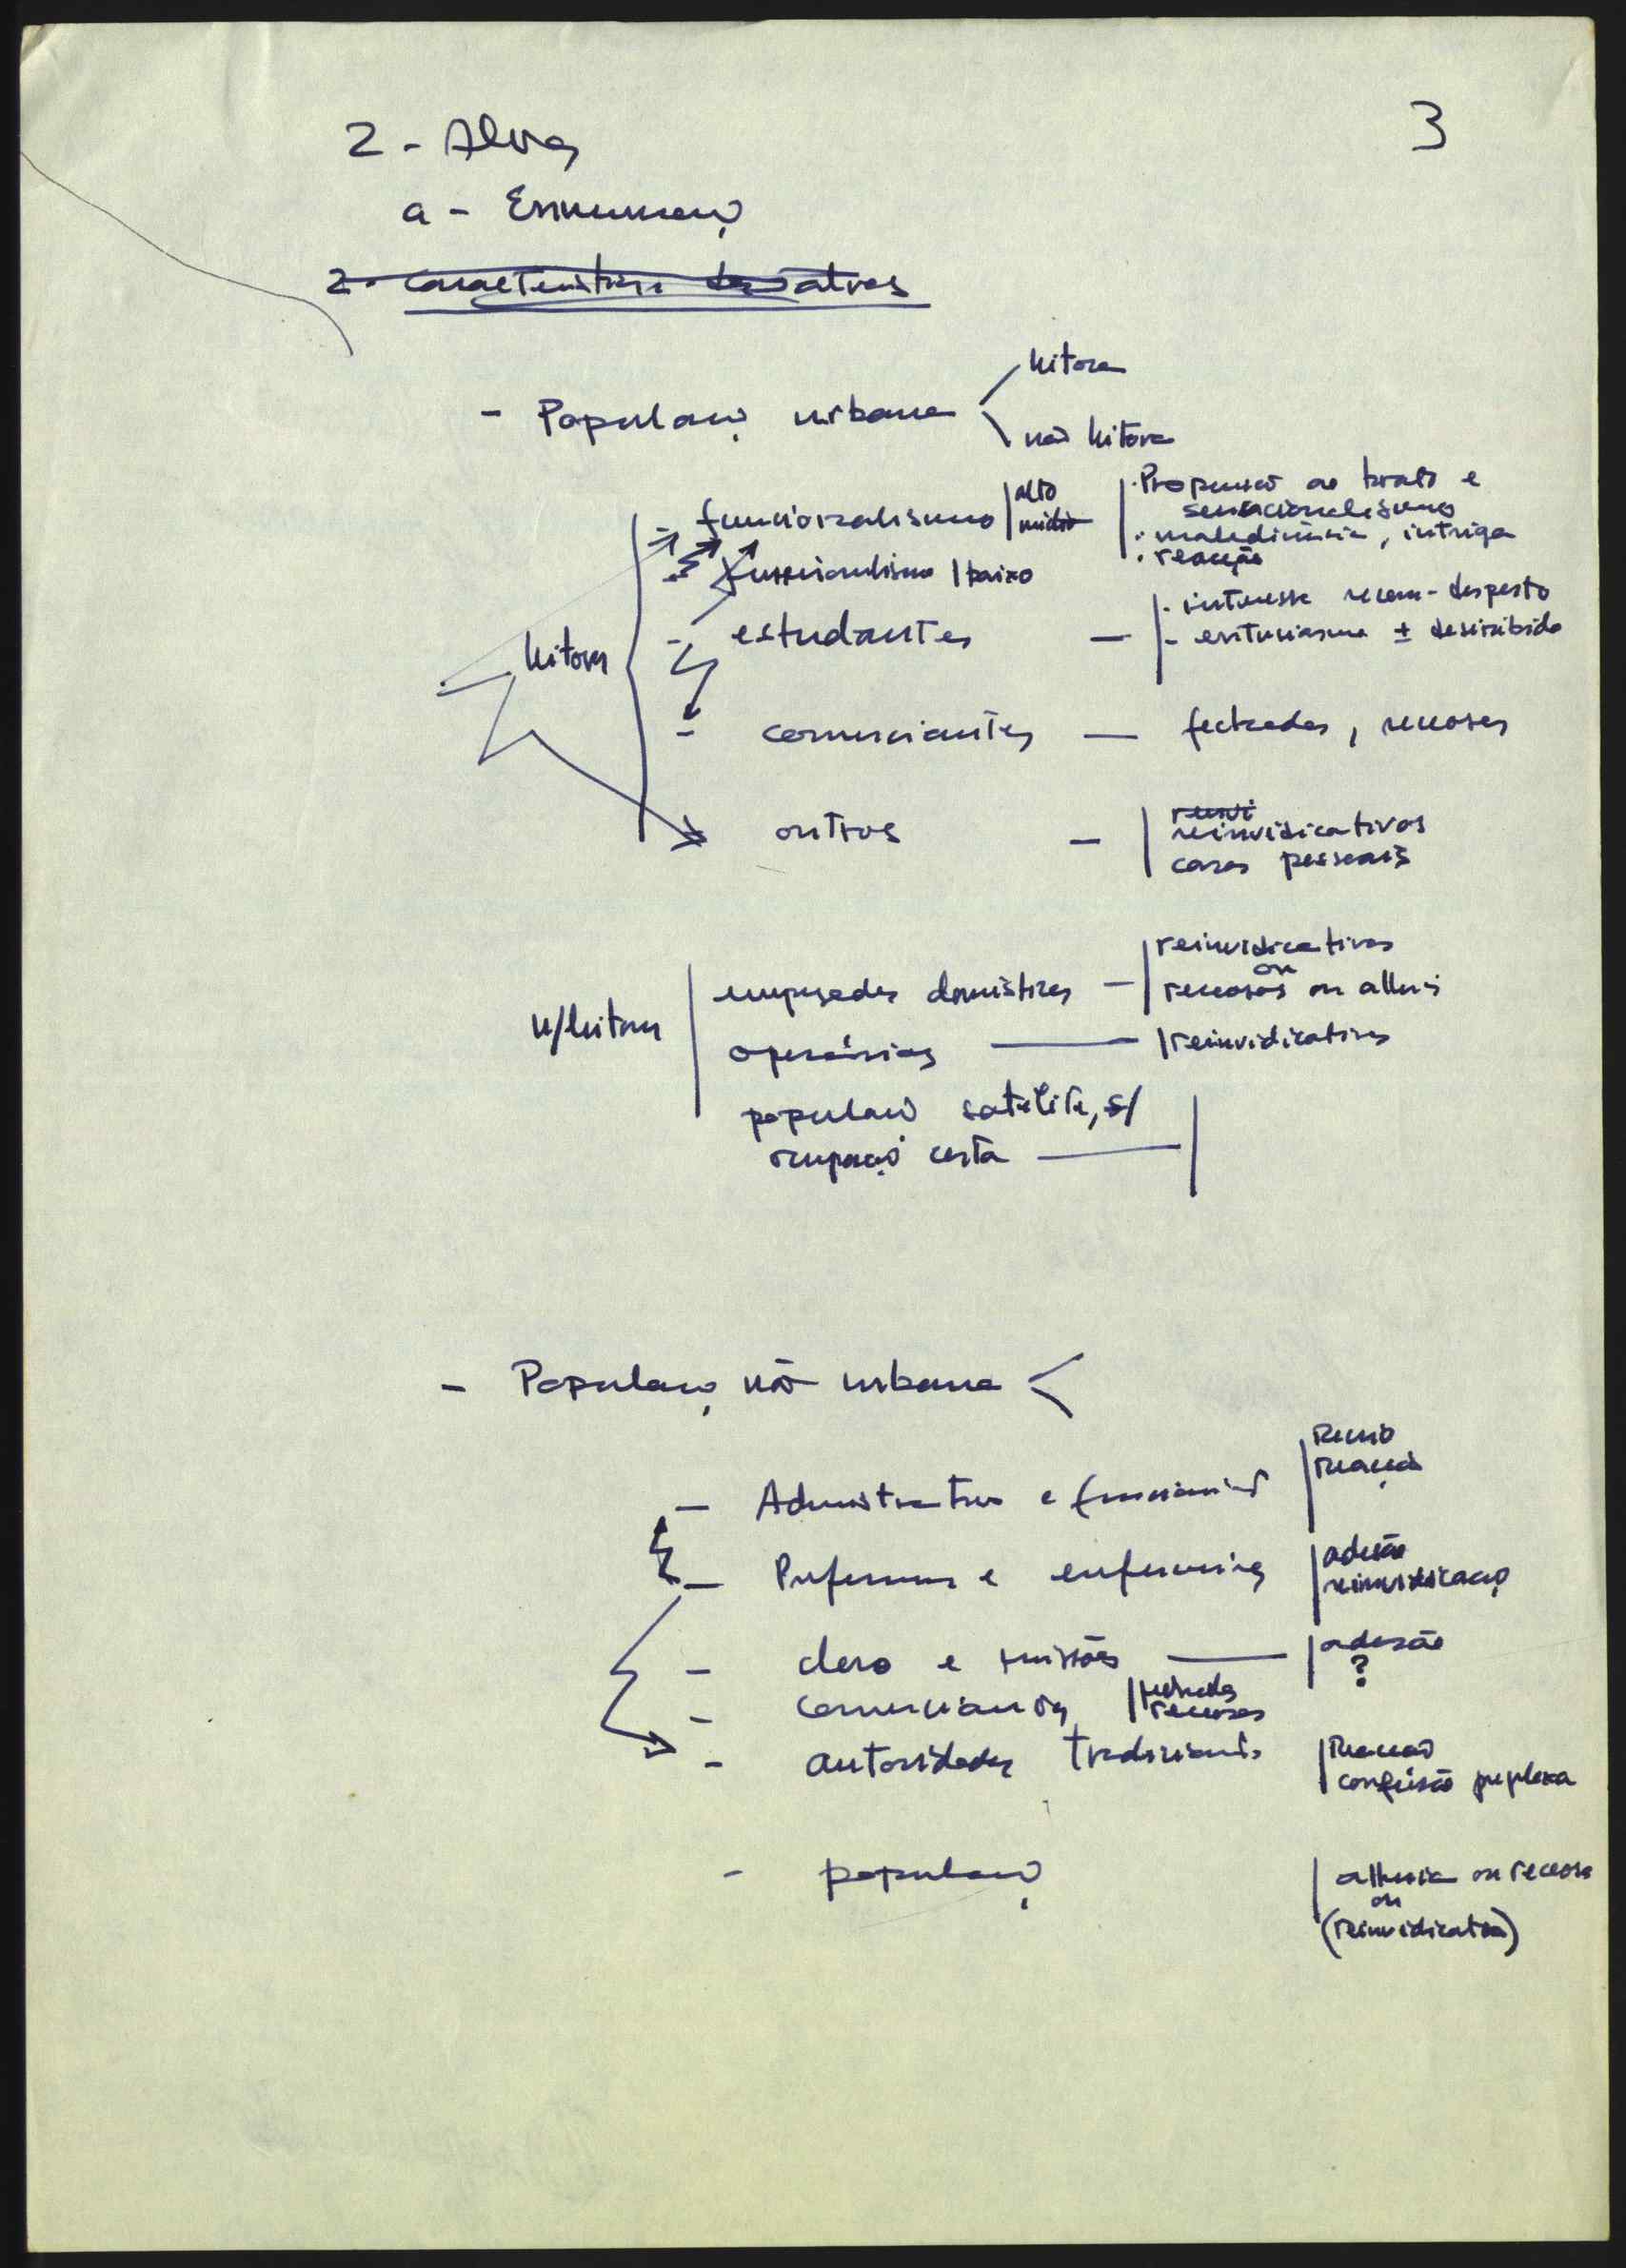 3
2 - Alvos
a - Ennumeração
2 - Características dos alvos
- População urbana
leitora
não leitora
leitores
- funcionalismo | alto
médio
· Propensão ao boato e
sensacionalismo
· maledicência, intriga
· reacção
- funcionalismo | baixo
- estudantes —
· interesse recem-desperto
- entusiasmo ± desinibido
- comerciantes — fechados, receosos
outros —
reinvi
reinvidicativos
casos pessoais
n/leitores
empregados domésticos —
reinvidicativos
ou
receosos ou alheios
operários — reinvidicativos
população satélite, s/
ocupação certa —
- População não urbana <
- Administrativo e funcionários
receio
reacção
- Professores e enfermeiros
adesão
reinvidicação
- clero e missões — adesão
?
- comerciantes | fechados
receosos
- autoridades tradicionais
Reacção
confusão perplexa
- população
alheia ou receosa
ou
(reinvidicativa)